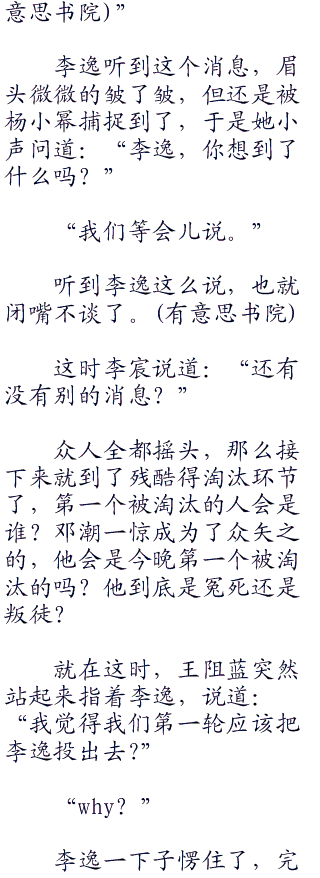 意思书院)”
李逸听到这个消息，眉
头微微的皱了皱，但还是被
杨小幂捕捉到了，于是她小
声问道：“李逸，你想到了
什么吗？”
“我们等会儿说。”
听到李逸这么说，也就
闭嘴不谈了。(有意思书院)
这时李宸说道：“还有
没有别的消息？”
众人全都摇头，那么接
下来就到了残酷得淘汰环节
了，第一个被淘汰的人会是
谁？邓潮一惊成为了众矢之
的，他会是今晚第一个被淘
汰的吗？他到底是冤死还是
叛徒？
就在这时，王阻蓝突然
站起来指着李逸，说道：
“我觉得我们第一轮应该把
李逸投出去？”
“why？”
李逸一下子愣住了，完